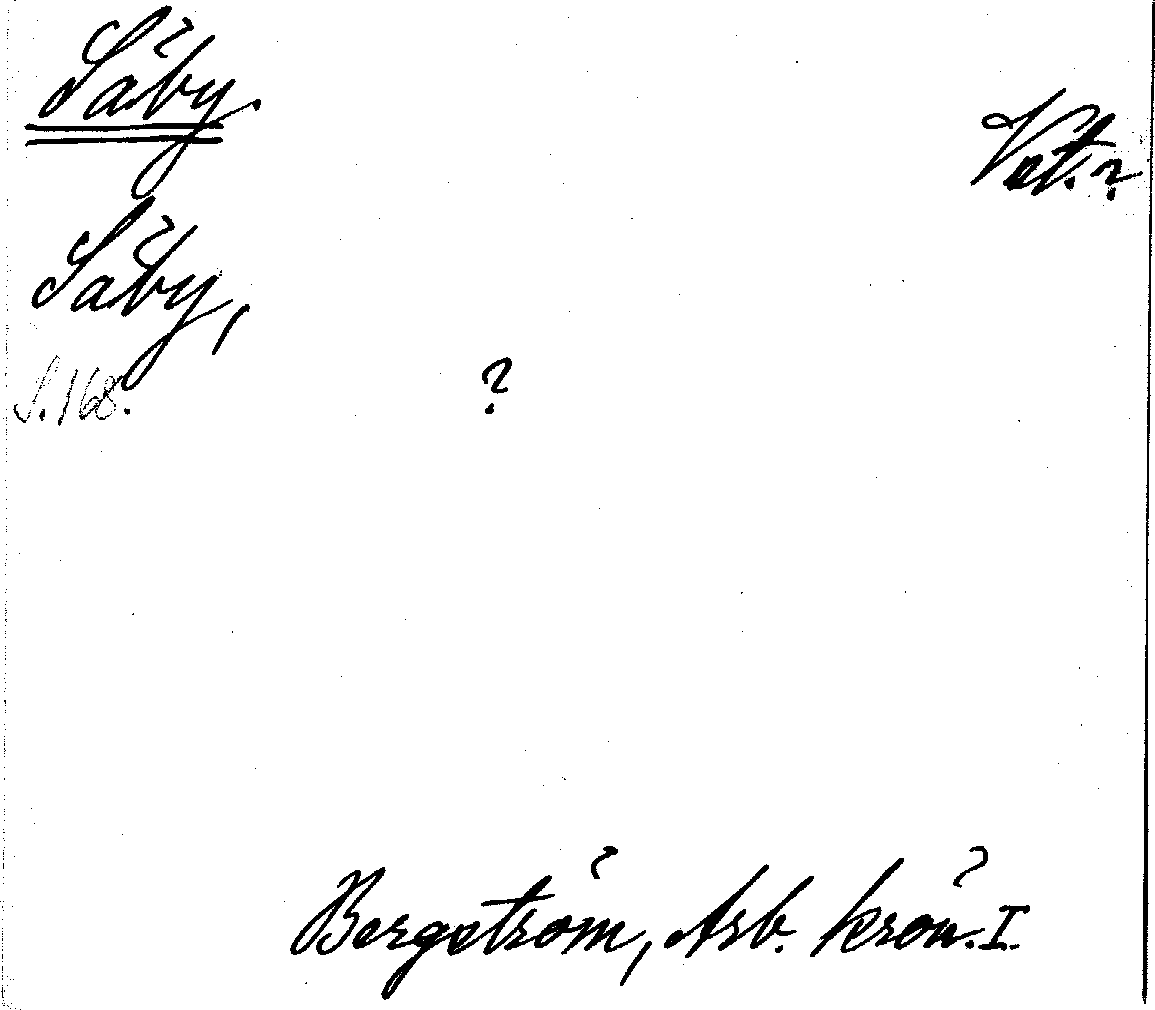 Säby.
Vet.?
Säby,
S. 168.
?
Bergström, Arb. krön. I.